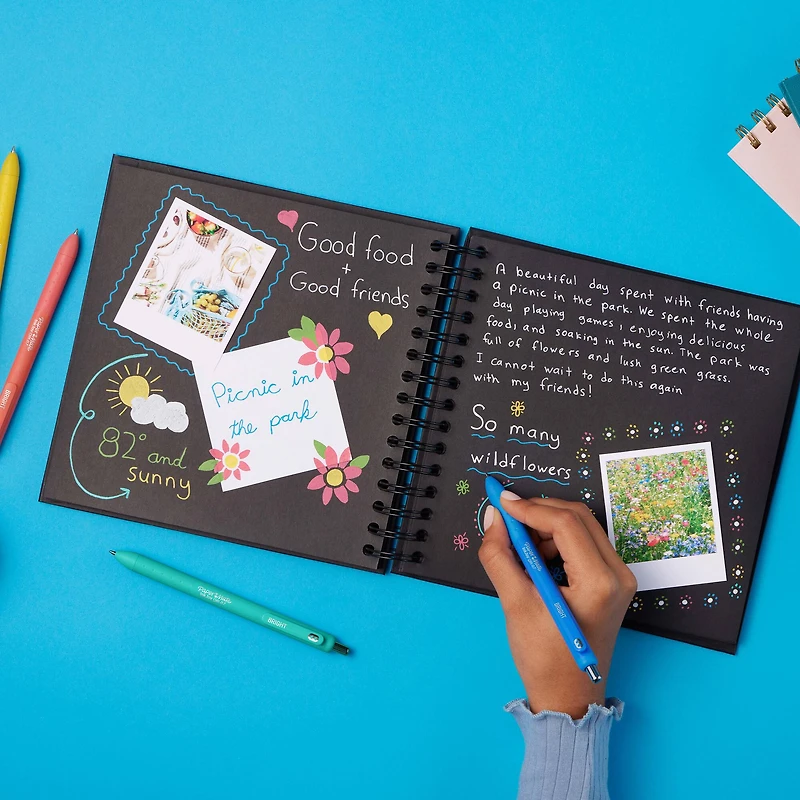 Good food
+
Good friends
Picnic in
the park
82° and
sunny
A beautiful day spent with friends having
a picnic in the park. We spent the whole
day playing games, enjoying delicious
food, and soaking in the sun. The park was
full of flowers and lush green grass.
I cannot wait to do this again
with my friends!
So many
wildflowers
BRIGHT
BRIGHT
BRIGHT